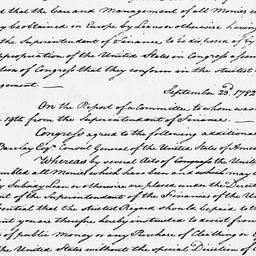 d that the Care and Management of all Monies so
y be obtained in Europe by Loan or otherwise having
the Superintendent of Finance to be disposed of by
ppropriation of the United States in Congress assem
ction of Congress that they conform in the strictest
gement. —
September 23d. 1782
On the Report of a Committee to whom was
19th from the Superintendent of Finance. —
Congress agreed to the following additional
Barclay Esqr. Consul General of the United States of Amer
Whereas by several Acts of Congress the United
embled all Monies which have been and which may
by Subsidy Loan or otherwise are placed under the Direct
of the Superintendent of the Finances of the Un
ential that the strictest Regard should be paid to
ent you are therefore hereby instructed to desist from
of public Money or any Purchase of Clothing or
the United States without the special Direction of